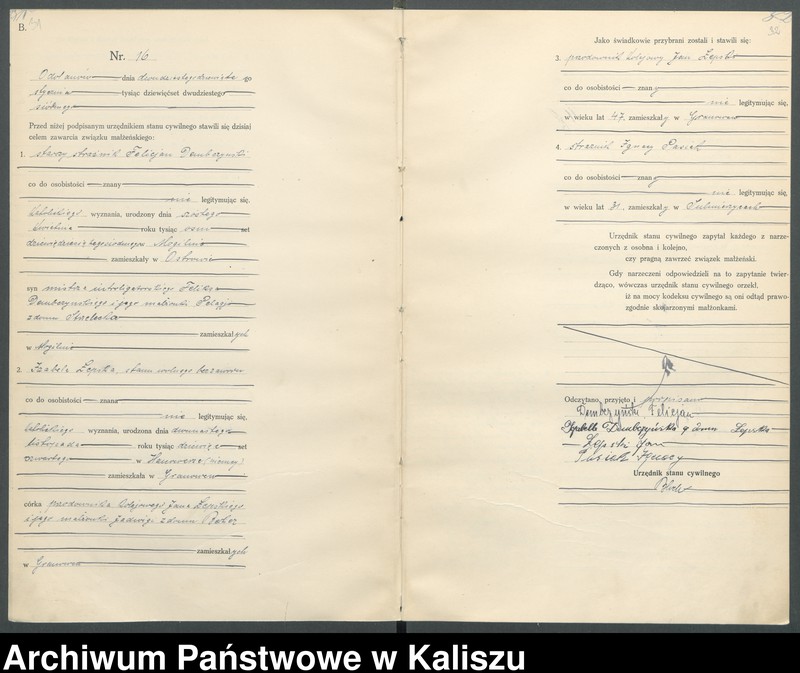 B.
Nr. 16
Odolanów dnia dwudziestego dziewiątego
stycznia tysiąc dziewięćset dwudziestego
siódmego
Przed niżej podpisanym urzędnikiem stanu cywilnego stawili się dzisiaj
celem zawarcia związku małżeńskiego:
1. starszy strażnik Felicjan Dembczyński
co do osobistości znany
nie legitymując się,
katolickiego wyznania, urodzony dnia szóstego
kwietnia roku tysiąc osm set
dziewięćdziesiątego siódmego w Mogilnie
zamieszkały w Ostrowie
syn mistrza introligatorskiego Feliksa
Dembczyńskiego i jego małżonki Pelagji
z domu Strzelecka
zamieszkałych
w Mogilnie
2. Izabela Łepska, stanu wolnego bez zawodu
co do osobistości znana
nie legitymując się,
katolickiego wyznania, urodzona dnia dwunastego
listopada roku tysiąc dziewięć set
czwartego w Hanowerze (Niemcy)
zamieszkała w Granowcu
córka przodownika kolejowego Jana Łepskiego
i jego małżonki Jadwigi z domu
zamieszkałych
w Granowcu
Jako świadkowie przybrani zostali i stawili się:
3. przodownik kolejowy Jan Łepski
co do osobistości znany
nie legitymując się,
w wieku lat 47, zamieszkały w Granowcu
4. strażnik Ignacy Pasiek
co do osobistości znany
nie legitymując się,
w wieku lat 31, zamieszkały w Sulmierzycach
Urzędnik stanu cywilnego zapytał każdego z narze-
czonych z osobna i kolejno,
czy pragną zawrzeć związek małżeński.
Gdy narzeczeni odpowiedzieli na to zapytanie twier-
dząco, wówczas urzędnik stanu cywilnego orzekł,
iż na mocy kodeksu cywilnego są oni odtąd prawo-
zgodnie skojarzonymi małżonkami.
Odczytano, przyjęto i podpisano
Dembczyński Felicjan
Izabella Dembczyńska z domu Łepska
Łepski Jan
Pasiek Ignacy
Urzędnik stanu cywilnego
Archiwum Państwowe w Kaliszu